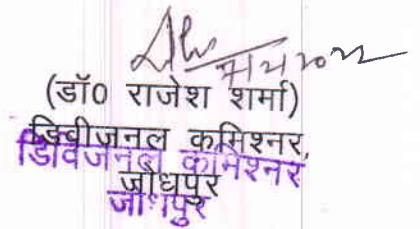 (डॉ0 राजेश शर्मा)
डिवीजनल कमिश्नर,
डिविजनल कमिश्नर
जोधपुर
जोधपुर